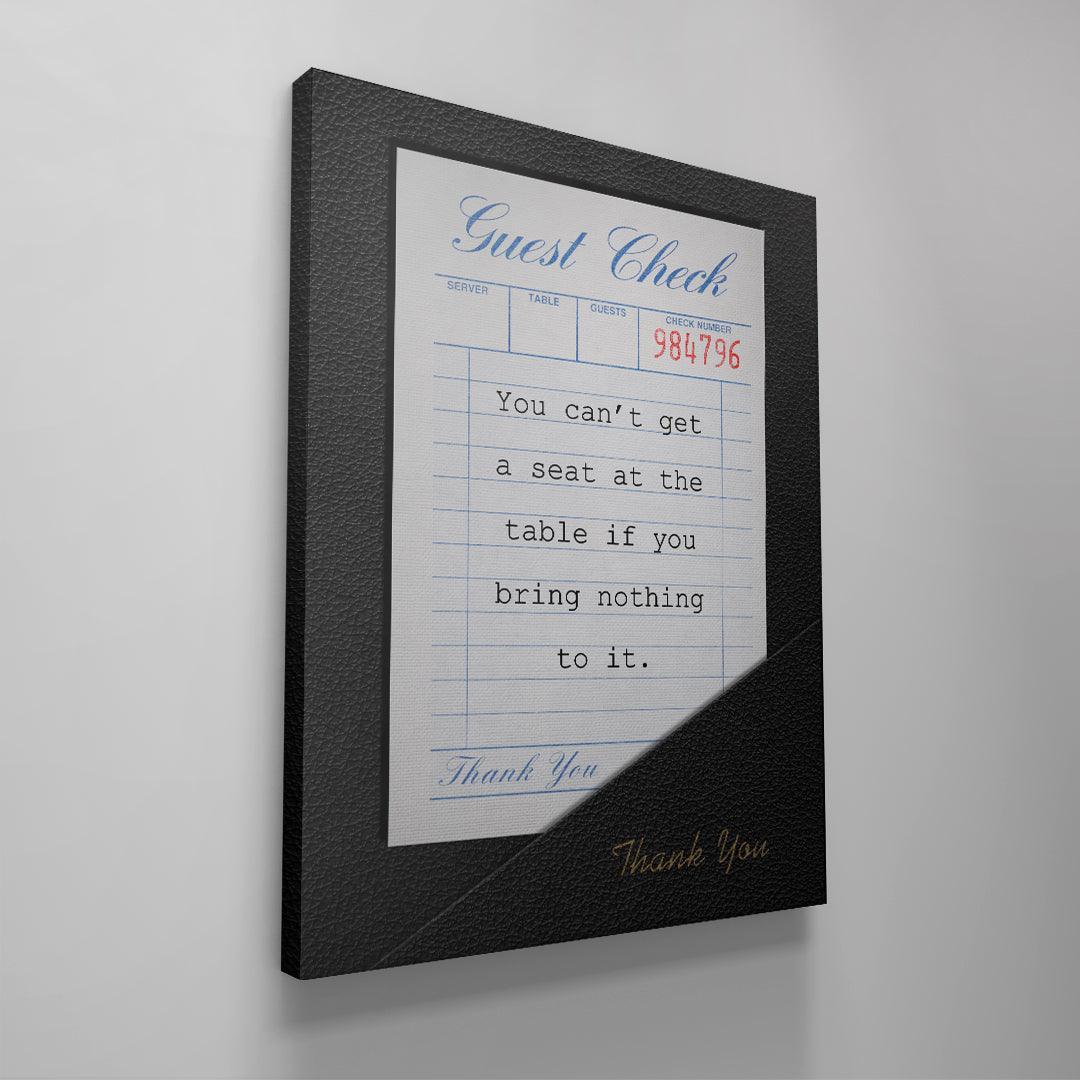 Guest Check
SERVER TABLE GUESTS CHECK NUMBER
984796
You can't get
a seat at the
table if you
bring nothing
to it.
Thank You
Thank You